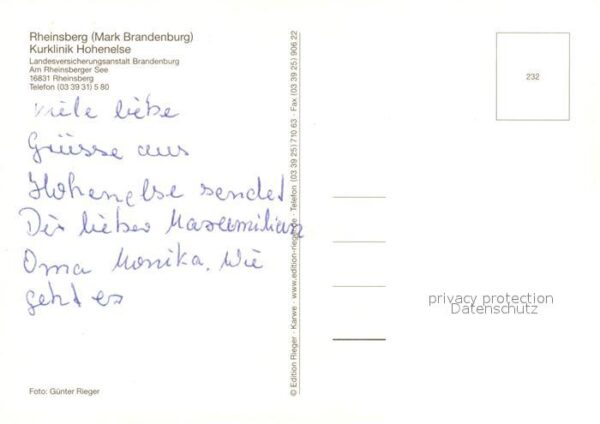 Rheinsberg (Mark Brandenburg)
Kurklinik Hohenelse
Landesversicherungsanstalt Brandenburg
Am Rheinsberger See
16831 Rheinsberg
Telefon (03 39 31) 5 80
Viele liebe
Grüsse aus
Hohenelse sendet
Dir lieber Maxemilian
Oma Monika. Wie
geht es
Foto: Günter Rieger
© Edition Rieger · Karwe · www.edition-rieger.de · Telefon (03 39 25) 710 63 · Fax (03 39 25) 906 22
232
privacy protection
Datenschutz